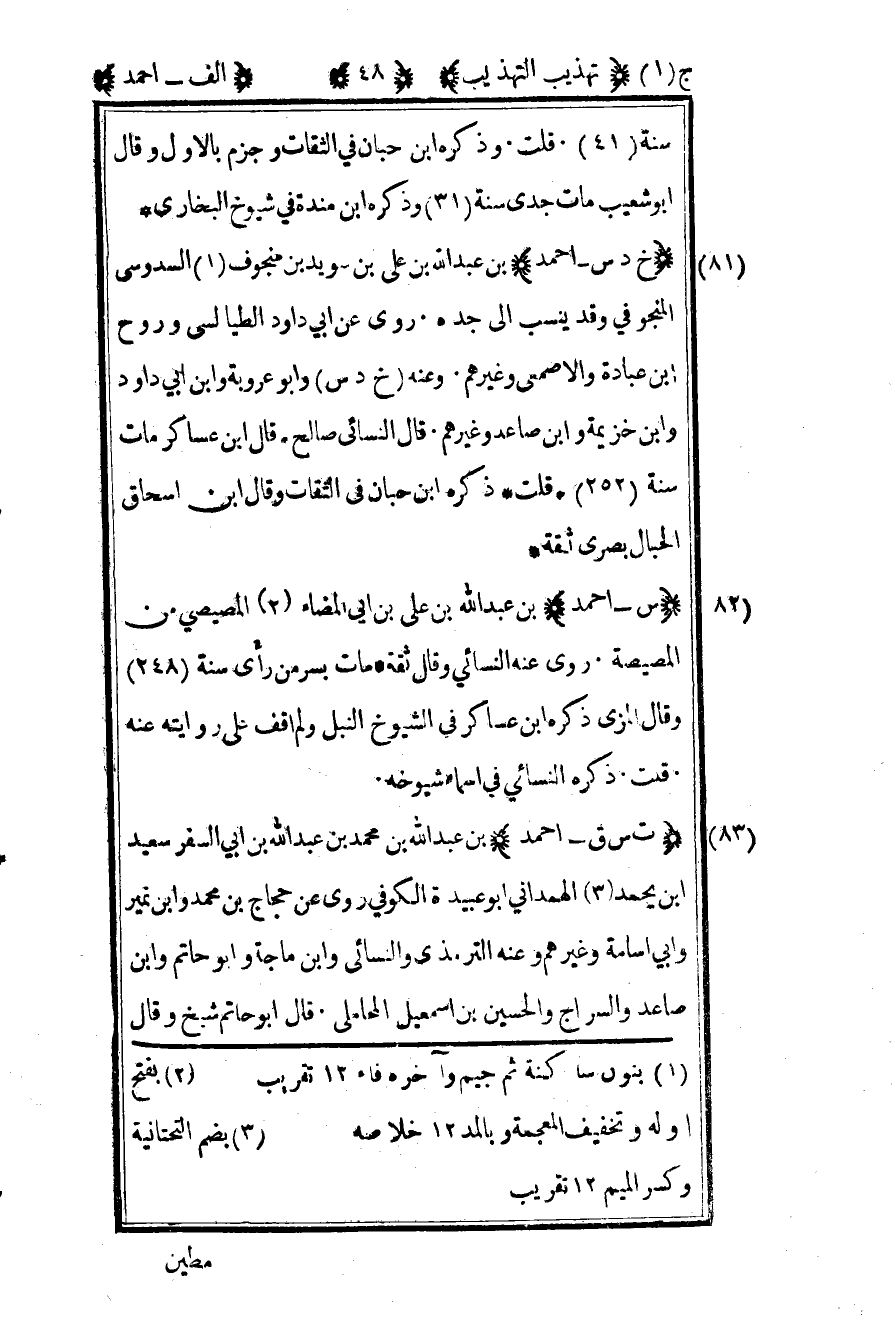 ج(١) ﴿ تهذيب التهذيب ﴾ ﴿ ٤٨ ﴾ ﴿ الف ــ احمد ﴾
سنة (٤١) ٠ قلت ٠ وذكره ابن حبان في الثقات وجزم بالاول وقال
ابوشعيب مات جدى سنة (٣١) وذكره ابن مندة في شيوخ البخارى*
(٨١) ﴿ خ د س ــ احمد ﴾ بن عبدالله بن على بن سويد بن منجوف (١) السدوسى
المنجوفي وقد ينسب الى جده ٠ روى عن ابي داود الطيالسى وروح
ابن عبادة والاصمعى وغيرهم ٠ وعنه (خ د س) وابو عروبة وابن ابي داود
وابن خزيمة وابن صاعد وغيرهم ٠ قال النسائى صالح * قال ابن عساكر مات
سنة (٢٥٢) * قلت * ذكره ابن حبان فى الثقات وقال ابن اسحاق
الحبال بصرى ثقة *
(٨٢ ﴿ س ــ احمد ﴾ بن عبدالله بن على بن ابي المضاء (٢) المصيصي من
المصيصة ٠ روى عنه النسائي وقال ثقة * مات بسر من رأى سنة (٢٤٨)
وقال المزى ذكره ابن عساكر في الشيوخ النبل ولم اقف على روايته عنه
٠ قلت ٠ ذكره النسائي في اسماء شيوخه ٠
(٨٣) ﴿ ت س ق ــ احمد ﴾ بن عبدالله بن محمد بن عبدالله بن ابي السفر سعيد
ابن يحمد (٣) الهمداني ابو عبيدة الكوفي روى عن حجاج بن محمد وابن نمير
وابي اسامة وغيرهم وعنه الترمذى والنسائى وابن ماجة وابو حاتم وابن
صاعد والسراج والحسين بن اسمعيل المحاملى ٠ قال ابو حاتم شيخ وقال
(١) بنون ساكنة ثم جيم وآخره فاء ١٢ تقريب (٢) بفتح
اوله وتخفيف المعجمة وبالمد ١٢ خلاصه (٣) بضم التحتانية
وكسر الميم ١٢ تقريب
مطين